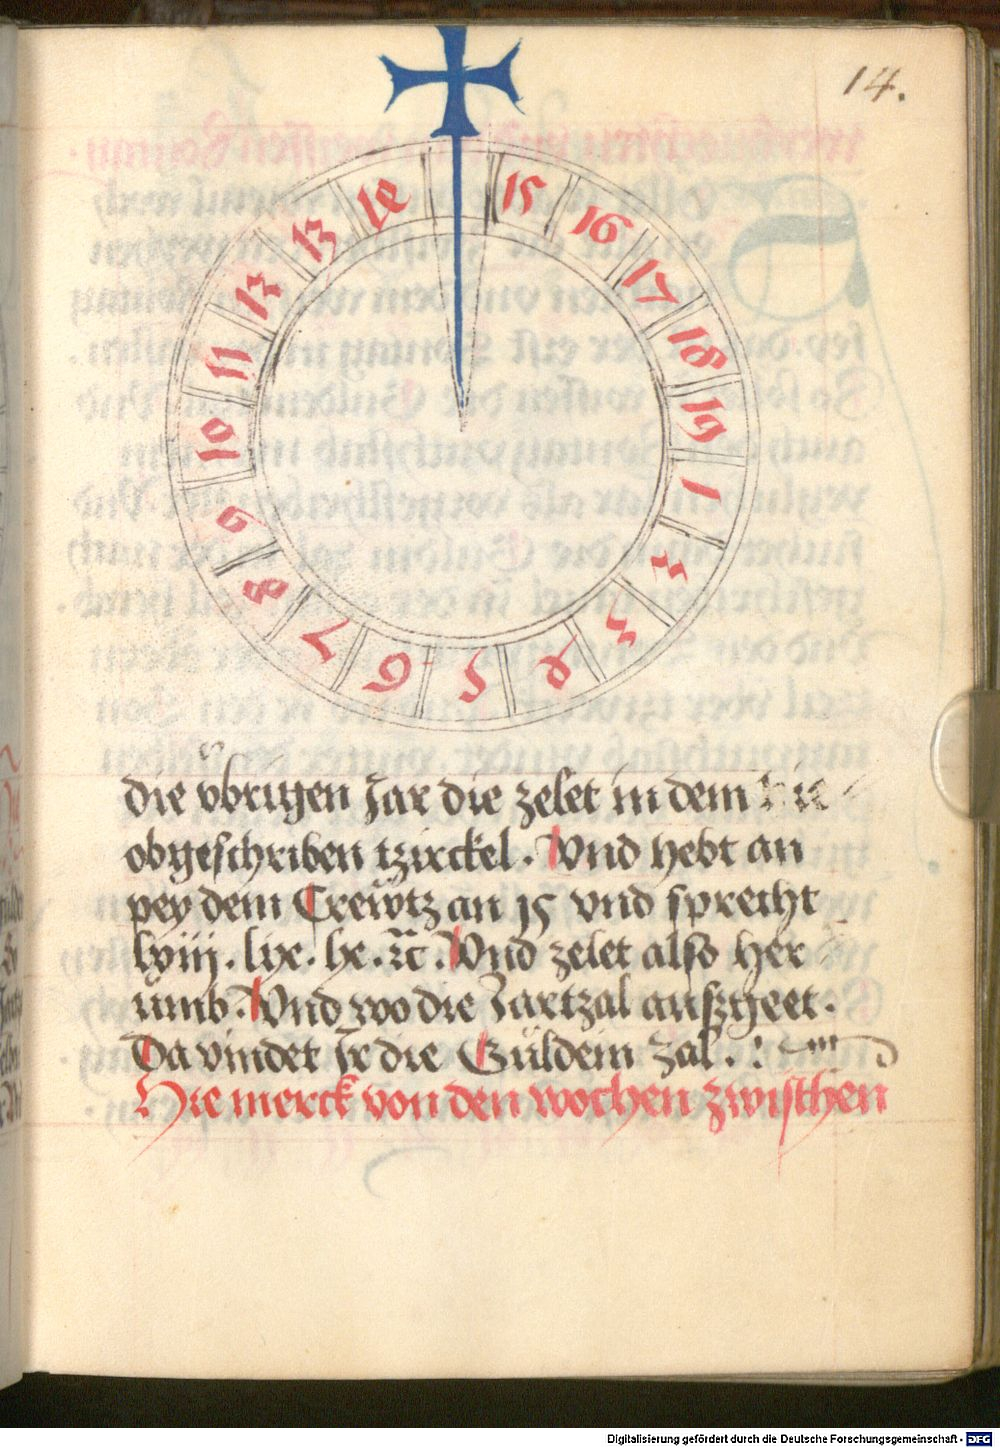 14.
15
16
17
18
19
1
2
3
4
5
6
7
8
9
10
11
13
13
14
die vbrigen Jar die zelet in dem hie
obgeschriben tzirckel. Vnd hebt an
pey dem Crewtz an 15 vnd sprecht
lviij. lix. lx. ⁊c. Vnd zelet also her
umb. Vnd wo die Jartzal auszgeet.
Da vindet Ir die Güldein zal. :
Hie merck von den wochen zwischen
Digitalisierung gefördert durch die Deutsche Forschungsgemeinschaft - DFG